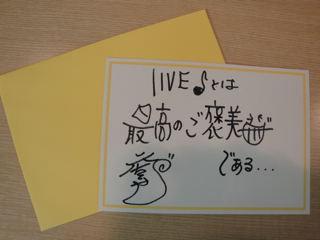 LIVE♪とは
最高のご褒美
である…